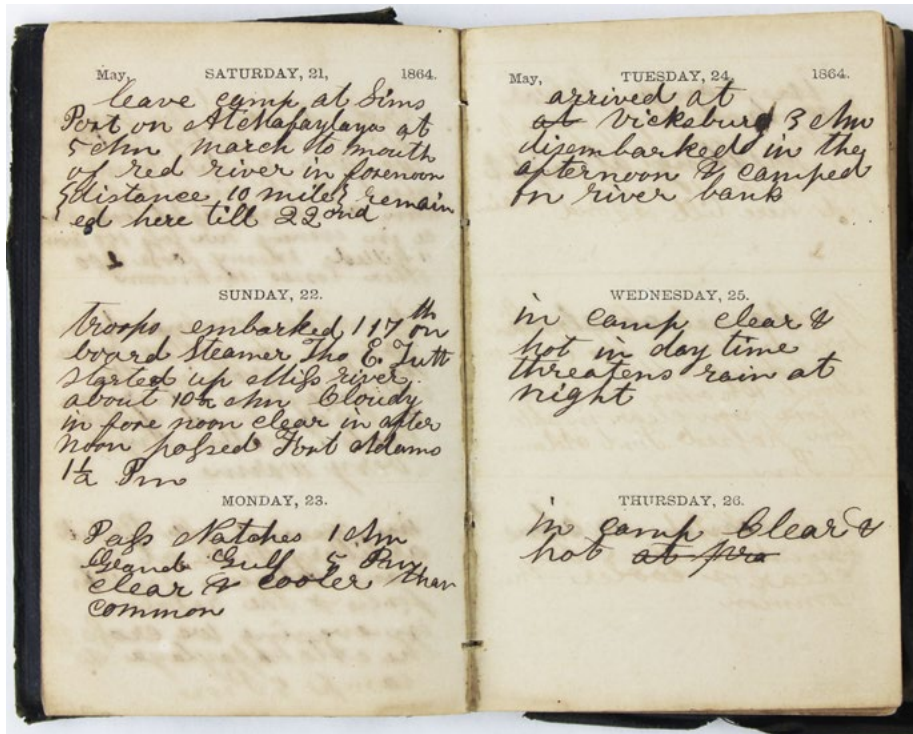 May, SATURDAY, 21, 1864.
leave camp at Sims
Port on Atchafaylaya at
5 Am march to mouth
of red river in forenoon
distance 10 miles remain
ed here till 22nd
SUNDAY, 22.
troops embarked 117th on
board Steamer Tho E. Tutt
started up Miss river
about 10½ Am Cloudy
in fore noon clear in after
noon passed Fort Adams
1½ Pm
MONDAY, 23.
Pass Natches 1 Am
Grand Gulf 5 Pm
clear & cooler than
common
May, TUESDAY, 24, 1864.
arrived at
at Vicksburg 3 Am
disembarked in the
afternoon & camped
on river bank
WEDNESDAY, 25.
in camp clear &
hot in day time
threatens rain at
night
THURSDAY, 26.
in camp Clear &
hot at